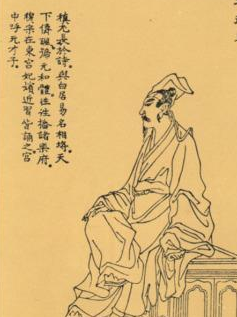 稹尤長於詩。與白居易名相埒。天
下傳諷。號元和體。往往播諸樂府。
穆宗在東宮。妃嬪近習皆誦之。宮
中呼元才子。